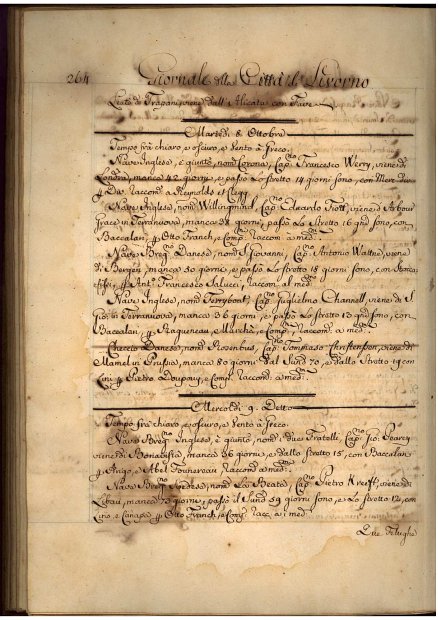 264 Giornale della Città di Livorno
Leuto di Trapani, viene dall'Alicata con Fave
Martedì 8 Ottobre
Tempo frà chiaro, e oscuro, e Vento à Greco.
Nave Inglese, è giunto, nomª Corona, Capno Francesco Werry, viene di
Londra, manca 42 giorni, e passò lo stretto 14 giorni sono, con Merc. div.
p Div. Raccom. a Reynolds e Clegg.
Nave Inglese, nomª Willingmind, Capno Edoardo Fiott, viene d'Arbour
Grace in Terranuova, manca 38 giorni, passò lo Stretto 16 gni sono, con
Baccalari p Otto Franck, e Compi Raccom. a medmi
Nave Bregno Danese, nomª S. Giovanni, Capno Antonio Watne, viene
di Bergen, manca 30 giorni, e passò lo stretto 18 giorni sono, con Stocco-
fissi, p Anto Francesco Salucci, Raccom. al medmo
Nave Inglese, nomª Ferryboat, Capno Guglielmo Channell, viene di S.
Gio: in Terranuova, manca 36 giorni, e passò lo stretto 13 giorni sono, con
Baccalari, p Ragueneau, e Compi, Raccom. a medmi
Checcio Danese, nomª Rosenbus, Capno Tommaso Christensen, viene di
Memel in Prussia, manca 80 giorni dal Sund 70, e dallo Stretto 19 con
Lini p Pietro Dupouy, e Compi Raccom. a medmi
Mercoledì 9. Detto
Tempo frà chiaro, e oscuro, e Vento à Greco.
Nave Bregno Inglese, è giunto, nomª i due Fratelli, Capno Gio. Pearcy
viene di Bonavista, manca 36 giorni, e dallo stretto 15, con Baccalari
p Arrigo, e Abel Fonnereau, Raccom. a medmi
Nave Bregno Svedese, nomª La Beata, Capno Pietro Krefft, viene di
Libau, manca 70 giorni, passò il Sund 59 giorni sono, e lo Stretto 12, con
Lino, e Canapa p Otto Franck, e Compi Racc. a i medmi
Due Felughe